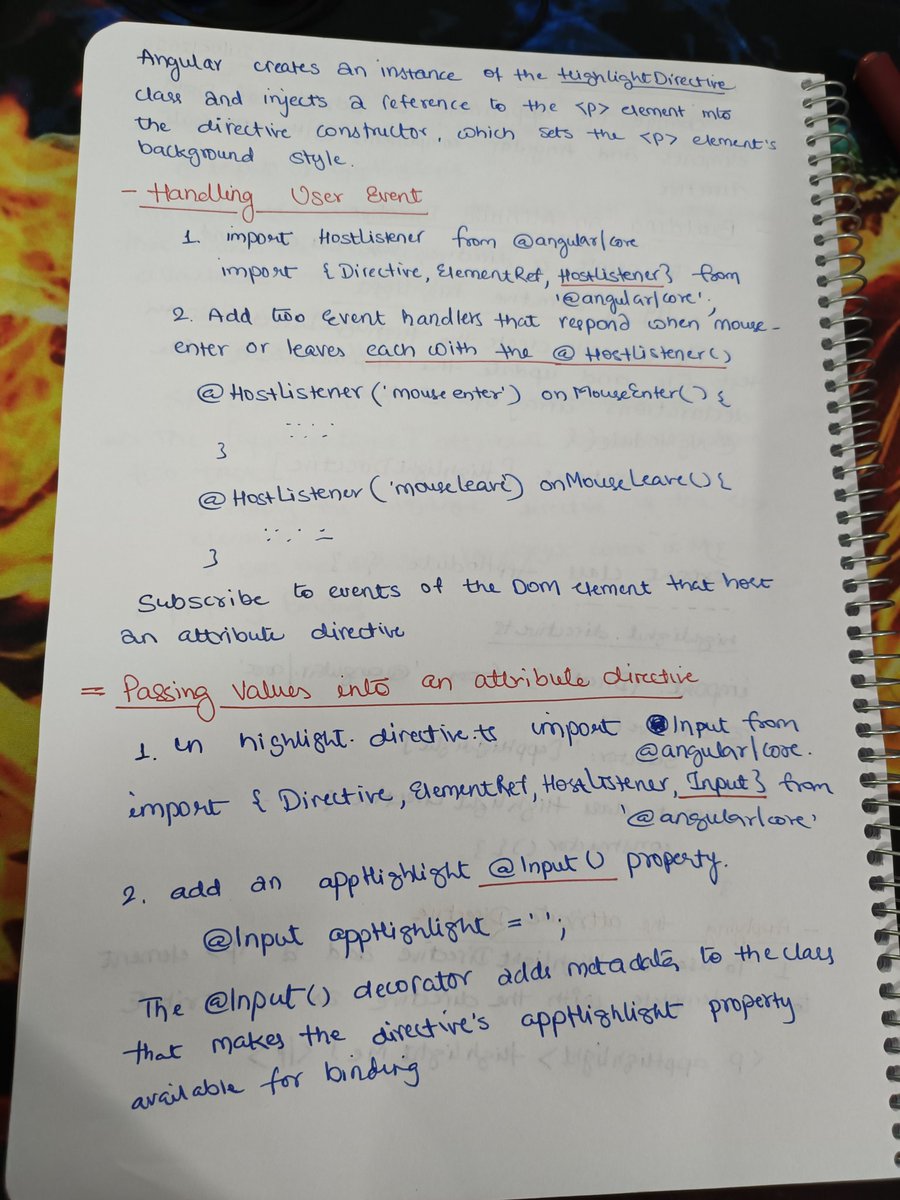 Angular creates an instance of the HighlightDirective
class and injects a reference to the <p> element into
the directive constructor, which sets the <p> element's
background style.
- Handling User Event
1. import HostListener from @angular/core
import {Directive, ElementRef, HostListener} from
'@angular/core';
2. Add two Event handlers that respond when mouse-
enter or leaves each with the @HostListener()
@HostListener('mouse enter') onMouseEnter() {
}
@HostListener('mouseleave) onMouseLeave() {
}
Subscribe to events of the DOM element that host
an attribute directive
= Passing values into an attribute directive
1. in highlight.directive.ts import @Input from
@angular/core.
import { Directive, ElementRef, HostListener, Input} from
'@angular/core'
2. add an appHighlight @Input() property.
@Input appHighlight = '';
The @Input() decorator adds metadata to the class
that makes the directive's appHighlight property
available for binding